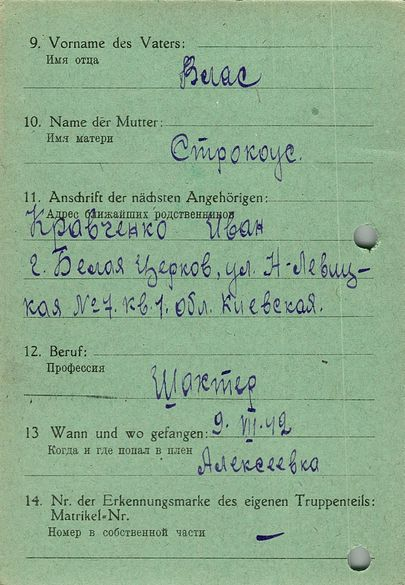 9. Vorname des Vaters:
Имя отца
Влас
10. Name der Mutter:
Имя матери
Строкоус.
11. Anschrift der nächsten Angehörigen:
Адрес ближайших родственников
Кравченко Иван
г. Белая Церков, ул. Н-Левиц-
кая №7. кв. 1. обл. Киевская.
12. Beruf:
Профессия
Шахтер
13 Wann und wo gefangen: 9. VII. 42
Когда и где попал в плен
Алексеевка
14. Nr. der Erkennungsmarke des eigenen Truppenteils:
Matrikel-Nr.
Номер в собственной части —